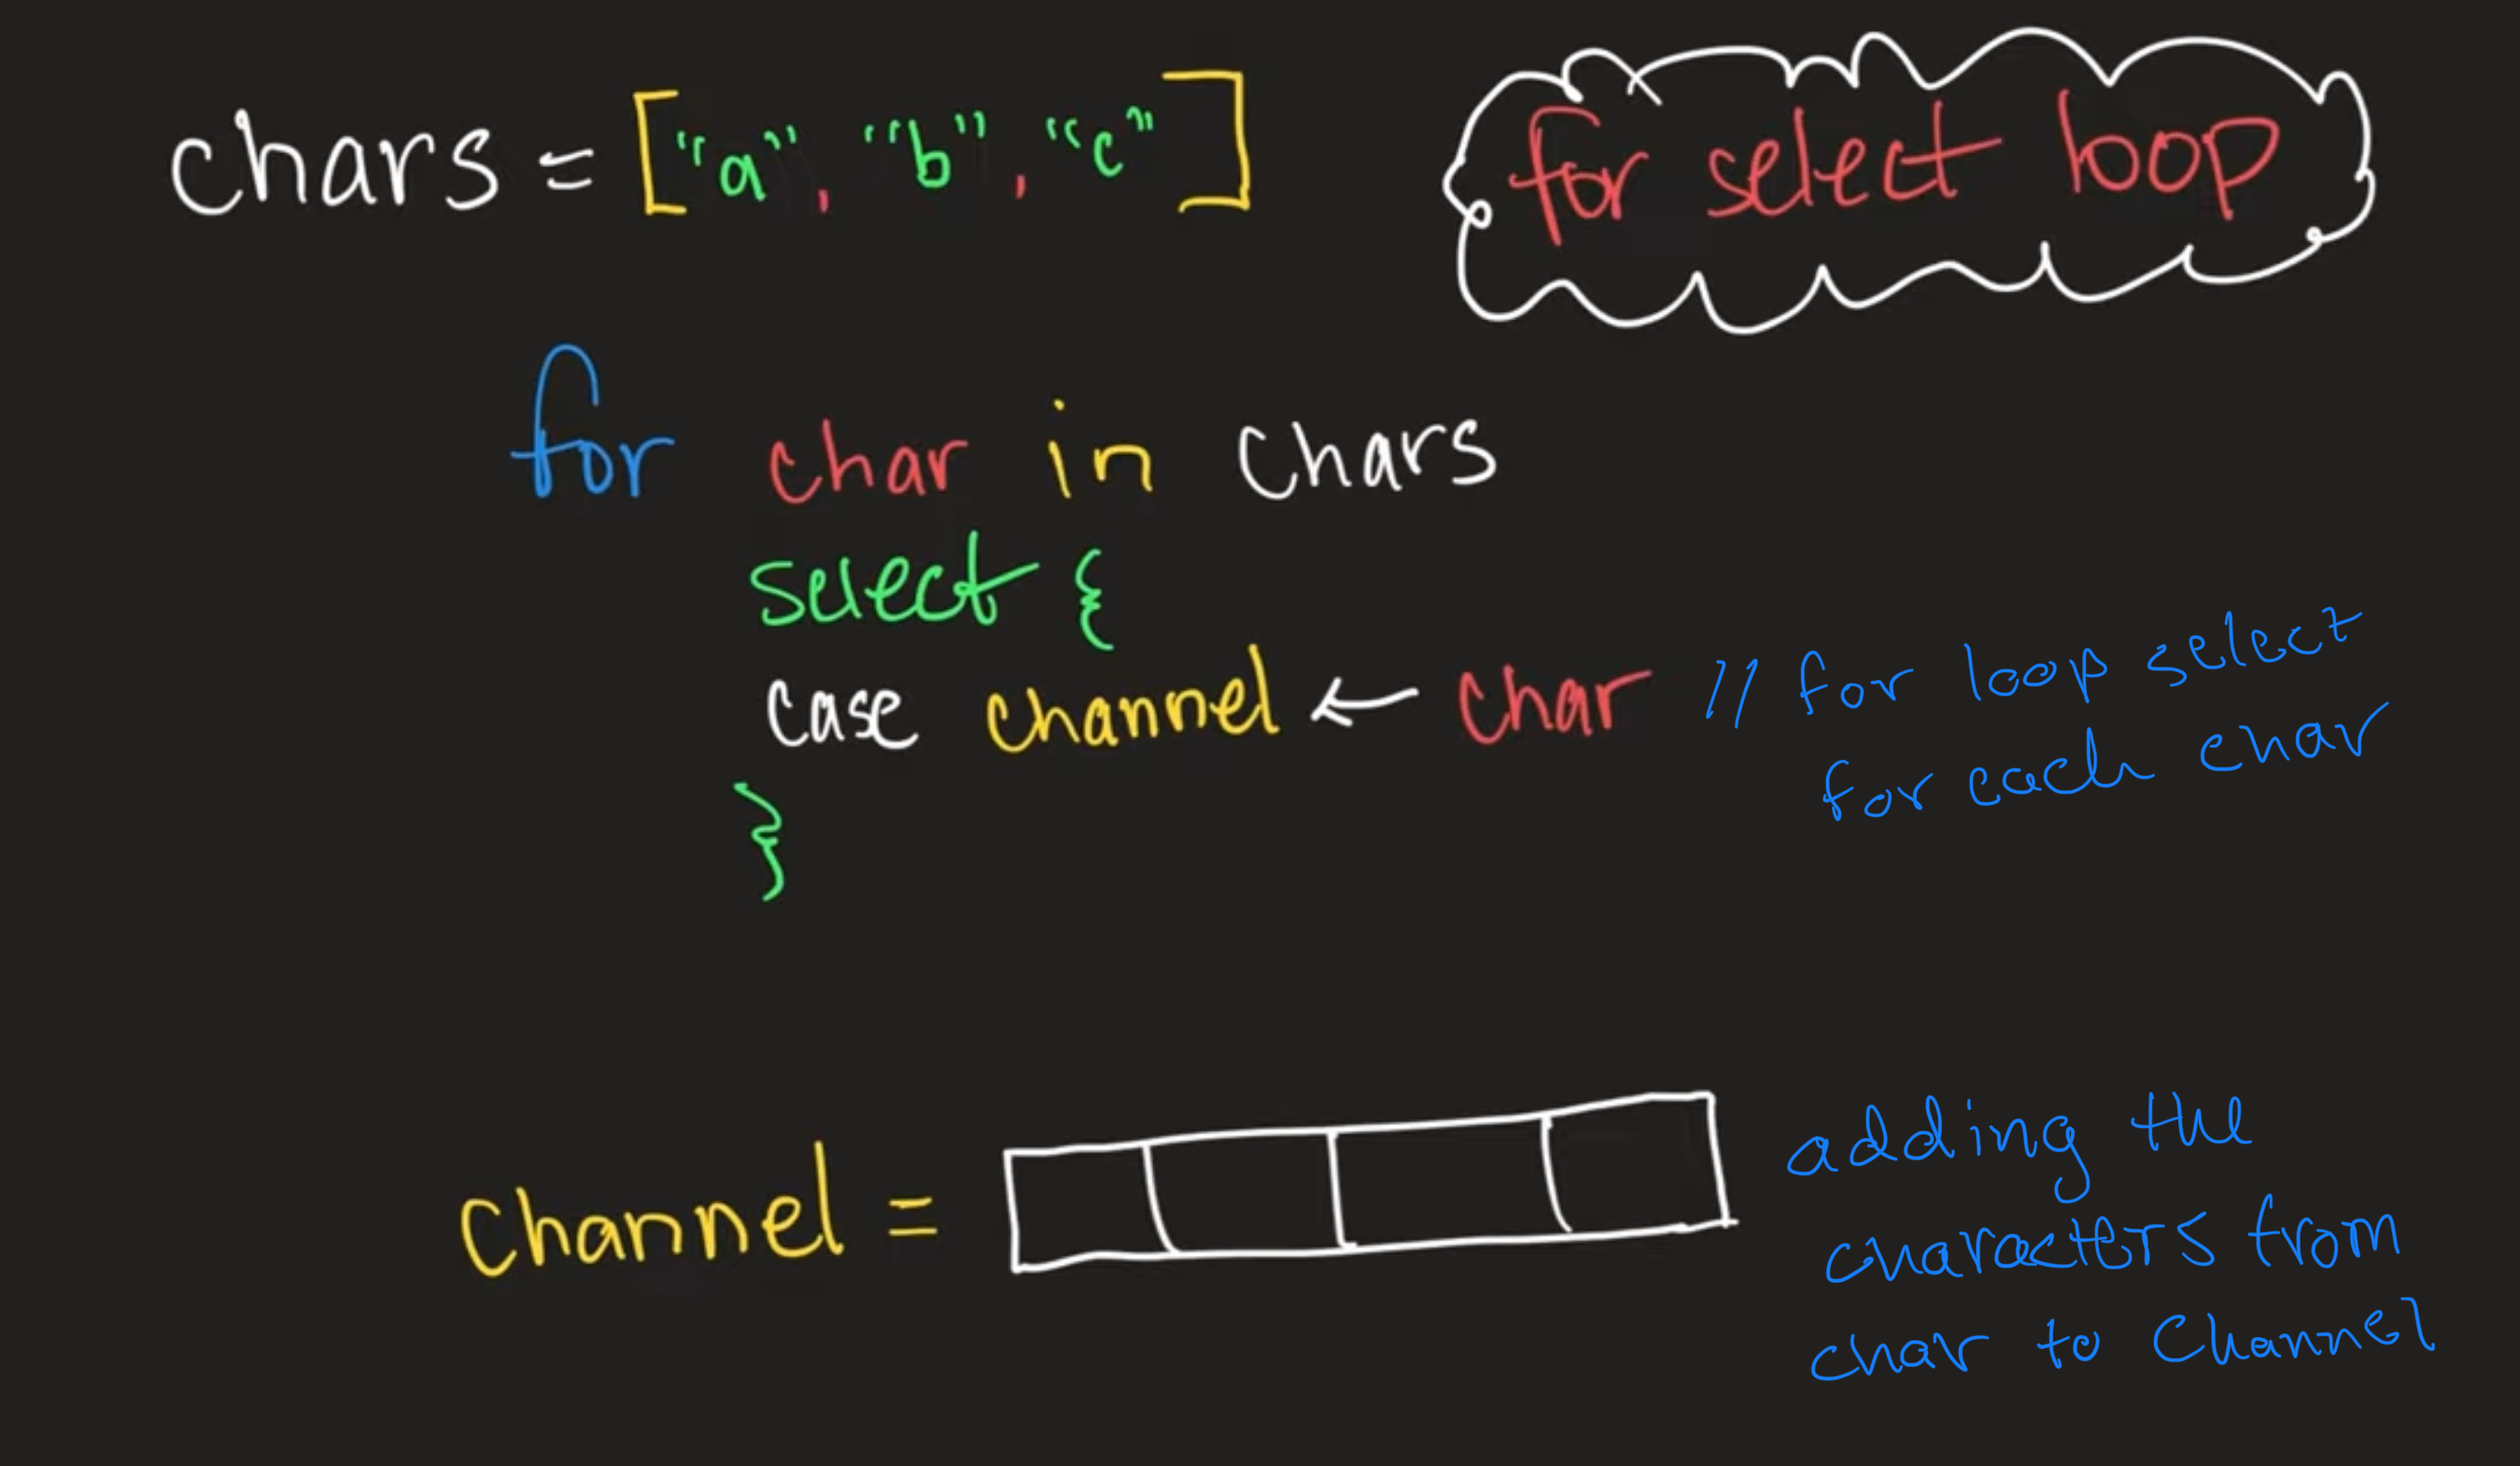 chars = ["a", "b", "c"]
for select loop
for char in chars
select {
case channel ← char // for loop select
for each char
}
channel =
adding the
characters from
char to Channel